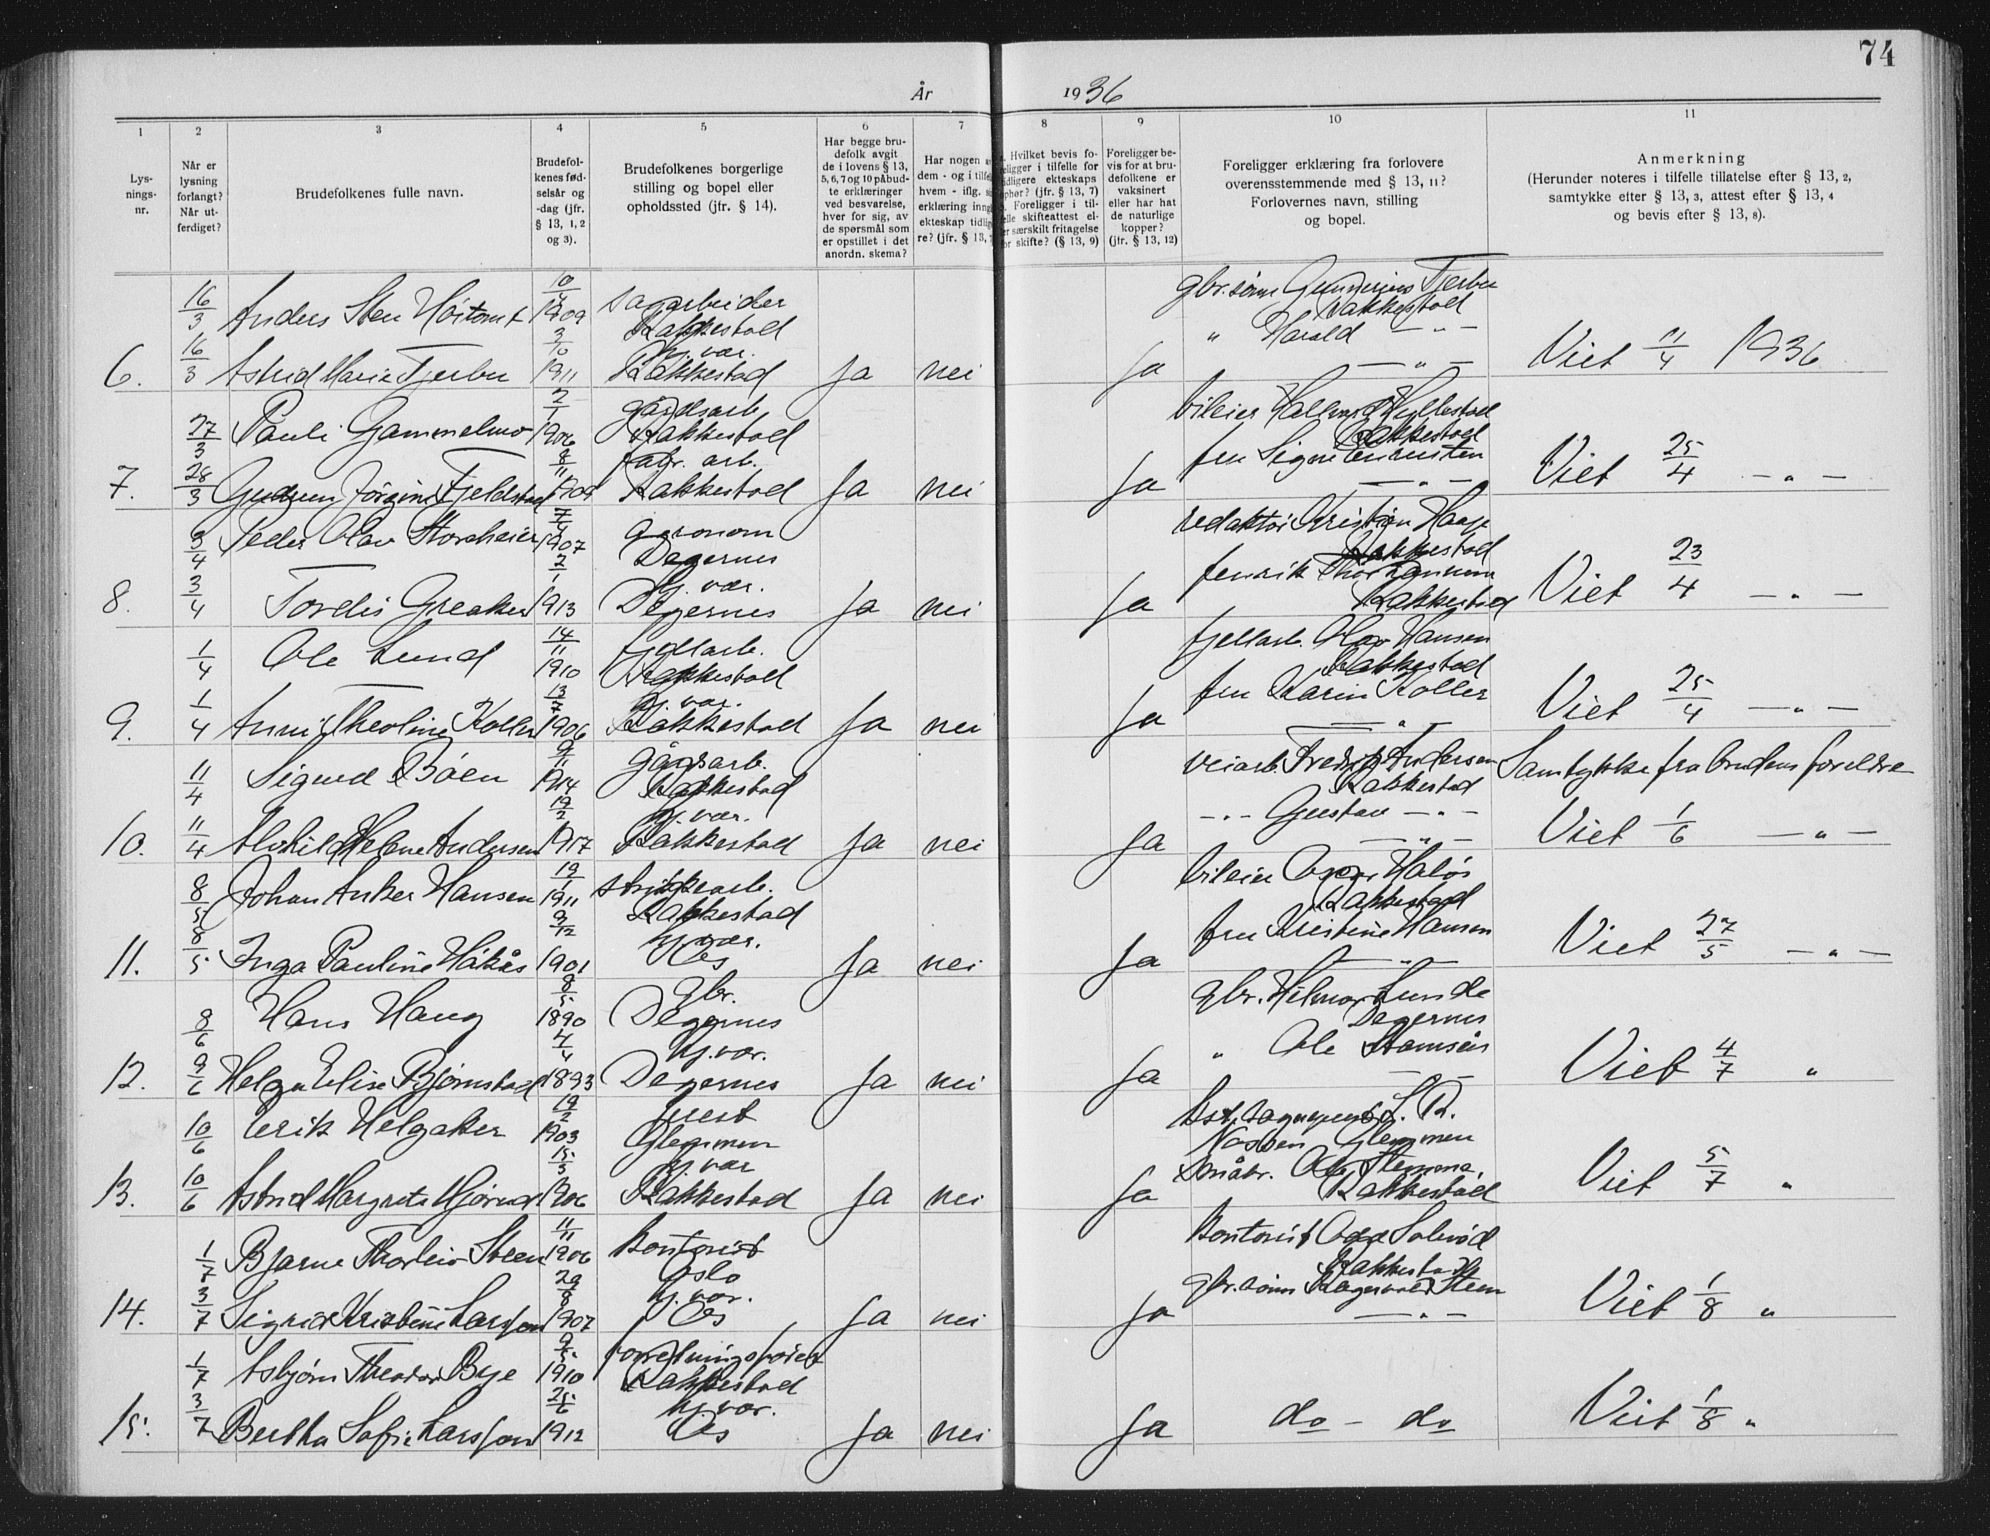 74
År 1936
1 2 3 4 5 6 7 8 9 10 11
Lys-
nings-
nr.
Når er
lysning
forlangt?
Når ut-
ferdiget?
Brudefolkenes fulle navn.
Brudefol-
kenes fød-
selsår og
-dag (jfr.
§ 13, 1, 2
og 3).
Brudefolkenes borgerlige
stilling og bopel eller
opholdssted (jfr. § 14).
Har begge bru-
defolk avgit
de i lovens § 13,
5, 6, 7 og 10 påbud-
te erklæringer
ved besvarelse,
hver for sig, av
de spørsmål som
er opstillet i det
anordn. skema?
Har nogen
dem - og i tilfel
hvem - iflg.
erklæring inng
ekteskap tidlig
re? (jfr. § 13,
Hvilket bevis fo-
religger i tilfelle for
tidligere ekteskaps
ophør? (jfr. § 13, 7)
Foreligger i til-
elle skifteattest el-
er særskilt fritagelse
or skifte? (§ 13, 9)
Foreligger be-
vis for at bru-
defolkene er
vaksinert
eller har hat
de naturlige
kopper?
(jfr. § 13, 12)
Foreligger erklæring fra forlovere
overensstemmende med § 13, 11?
Forlovernes navn, stilling
og bopel.
Anmerkning
(Herunder noteres i tilfelle tillatelse efter § 13, 2,
samtykke efter § 13, 3, attest efter § 13, 4
og bevis efter § 13, 8).
16/3 Anders Sten Høitomt 10/4 1909 sagarbeider Rakkestad
gbr.sønn Gunnerius Tjerbu Rakkestad
" Harald — " —
6. 16/3 Astrid Marie Tjerbu 3/10 1911 hj. vær. Rakkestad Ja nei Ja — " — Viet 11/4 1936
27/3 Pauli Gammelmo 2/1 1906 gårdsarb. Rakkestad
bileier Halvard Hyllestad Rakkestad
7. 28/3 Jørgine Fjeldstad 8/11 1909 fabr. arb. Rakkestad Ja nei Ja fru Signe — " — Viet 25/4 — " —
3/4 Peder Olav Storeheier 7/4 1907 agronom Degernes
redaktør Kristian Haaje Rakkestad
8. 3/4 Tordis Greaker 2/1 1913 hj. vær. Degernes Ja nei Ja fenrik Thor Rakkestad Viet 23/4 — " —
1/4 Ole Lund 14/11 1910 fjellarb. Rakkestad
fjellarb. Olav Hansen Rakkestad
9. 1/4 Anni Theoline Koller 13/7 1906 hj. vær. Rakkestad Ja nei Ja fru Karin Koller — " — Viet 25/4 — " —
11/4 Sigurd Bøen 9/11 1914 gårdsarb. Rakkestad
veiarb. Fredrik Andersen Rakkestad Samtykke fra brudens foreldre
10. 11/4 Alvhild Helene Andersen 19/2 1917 hj. vær. Rakkestad Ja nei Ja — " — Gustav — " — Viet 1/6 — " —
8/5 Johan Anker Hansen 19/1 1911 Rakkestad
bileier Rakkestad
11. 8/5 Inga Pauline Håkås 9/12 1901 hj. vær. Os Ja nei Ja fru Kristine Hansen — " — Viet 27/5 — " —
8/6 Hans Haug 8/5 1890 gbr. Degernes
gbr. Hilmar Lunde Degernes
12. 9/6 Helga Elise Bjørnstad 4/4 1893 hj. vær. Degernes Ja nei Ja " Ole — — Viet 4/7 "
10/6 Erik Helgaker 19/2 1903 Glemmen
Glemmen
13. 10/6 Astrid Margrete 15/3 1906 hj. vær Rakkestad Ja nei Ja småbr. Ole Rakkestad Viet 5/7 "
1/7 Bjarne Thorleiv Steen 11/11 1906 kontorist Oslo
kontorist Rakkestad
14. 3/7 Sigrid Kristine Larssen 29/8 1907 hj. vær. Os Ja nei Ja gbr.sønn Ragnvald — " — Viet 1/8 "
1/7 Asbjørn Theodor Bye 9/5 1910 forretningsfører Rakkestad
15. 3/7 Bertha Sofie Larssen 25/6 1912 hj. vær. Os Ja nei Ja do — do Viet 1/8 "